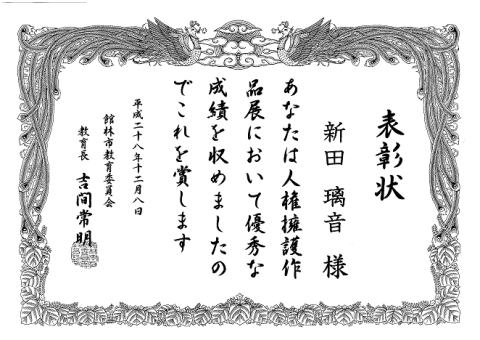 表彰状
新田 璃音 様
あなたは人権擁護作
品展において優秀な
成績を収めましたの
でこれを賞します
平成二十八年十二月八日
館林市教育委員会
教育長 吉間常明